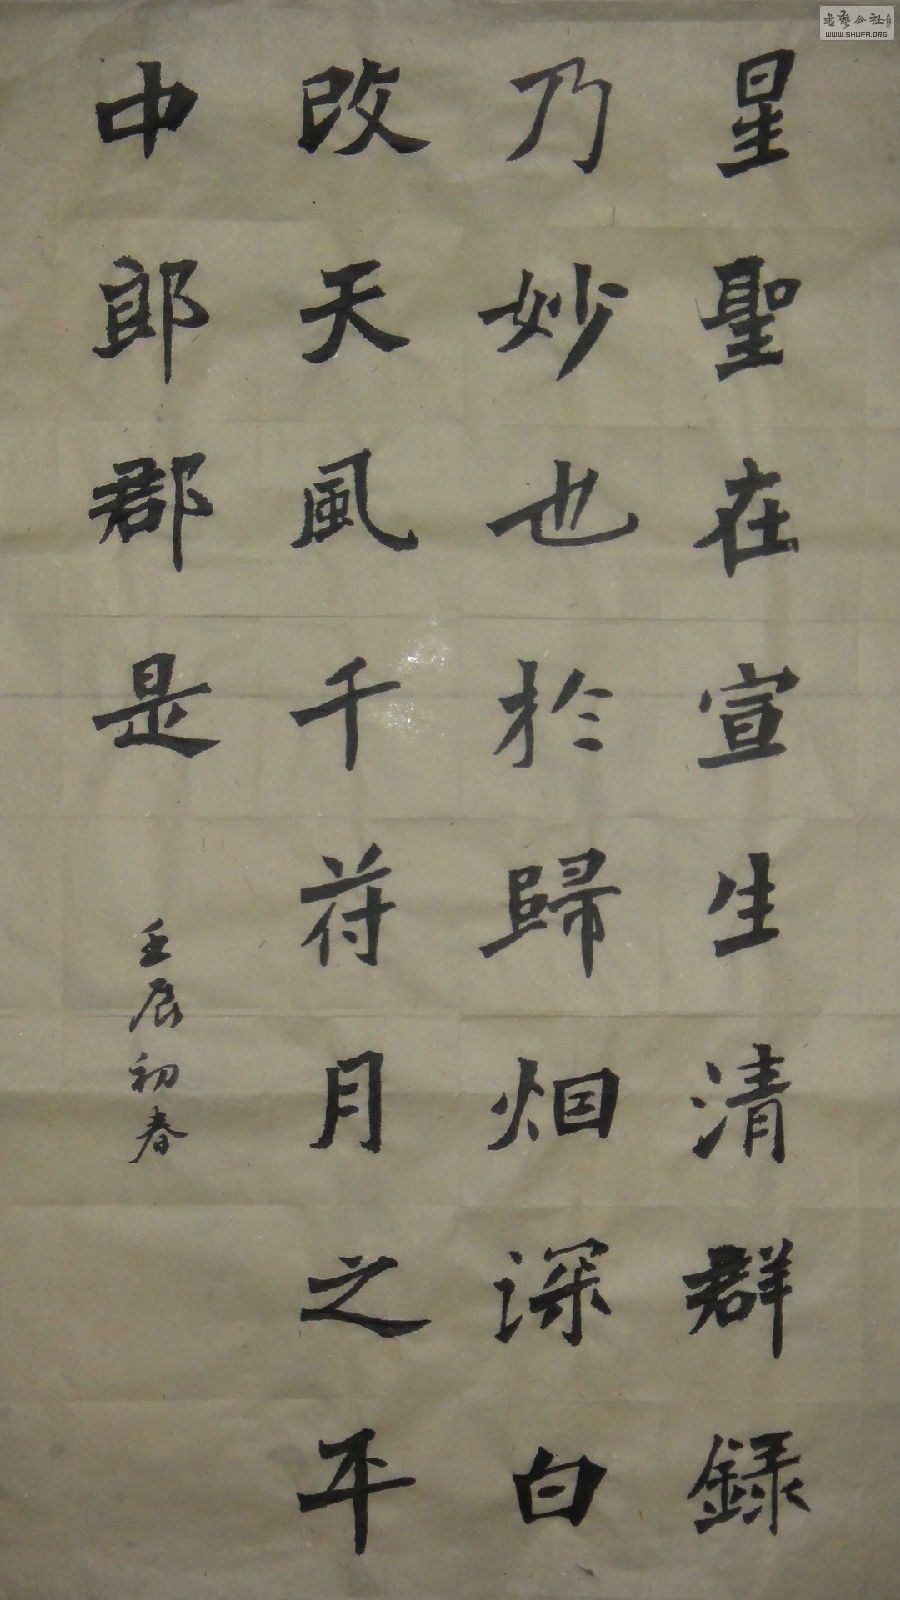 星聖在宣生清群録
乃妙也於歸烟深白
改天風千荷月之平
中郎郡是
壬辰初春
WWW.SHUFA.ORG